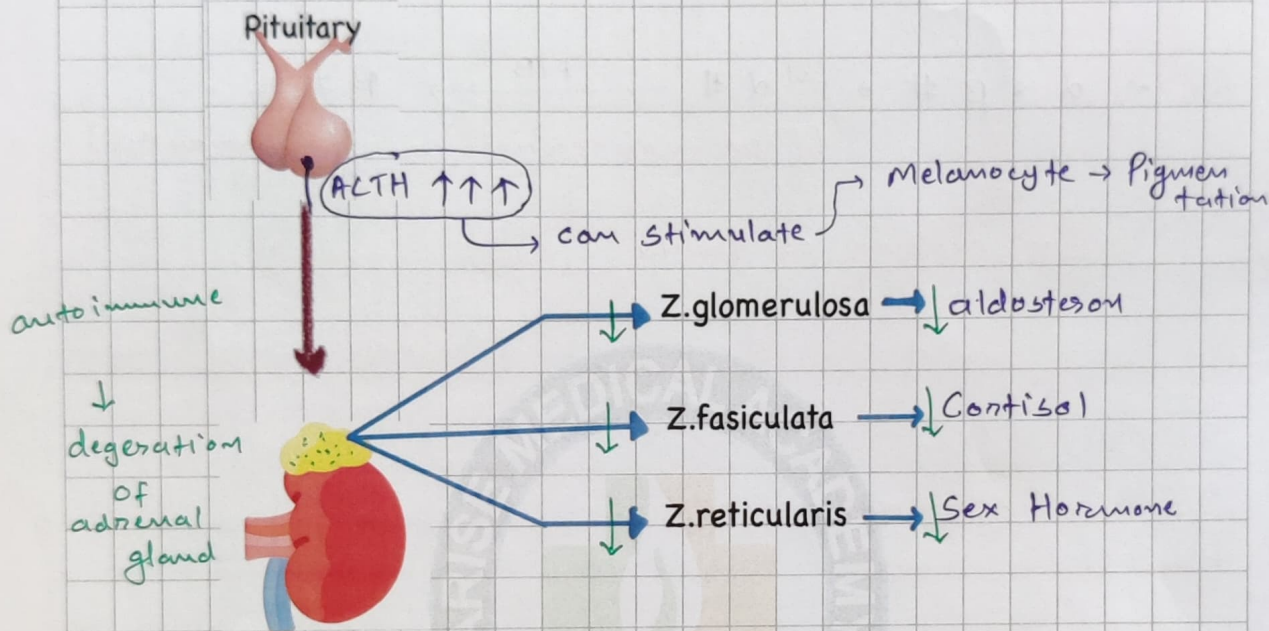 Pituitary
ACTH ↑↑↑
can stimulate → Melanocyte → Pigmen
tation
autoimmune
↓
degeration
of
adrenal
gland
↓ Z.glomerulosa → ↓ aldosteron
↓ Z.fasiculata → ↓ Cortisol
↓ Z.reticularis → ↓ Sex Hormone
ARISE MEDICAL ACADEM